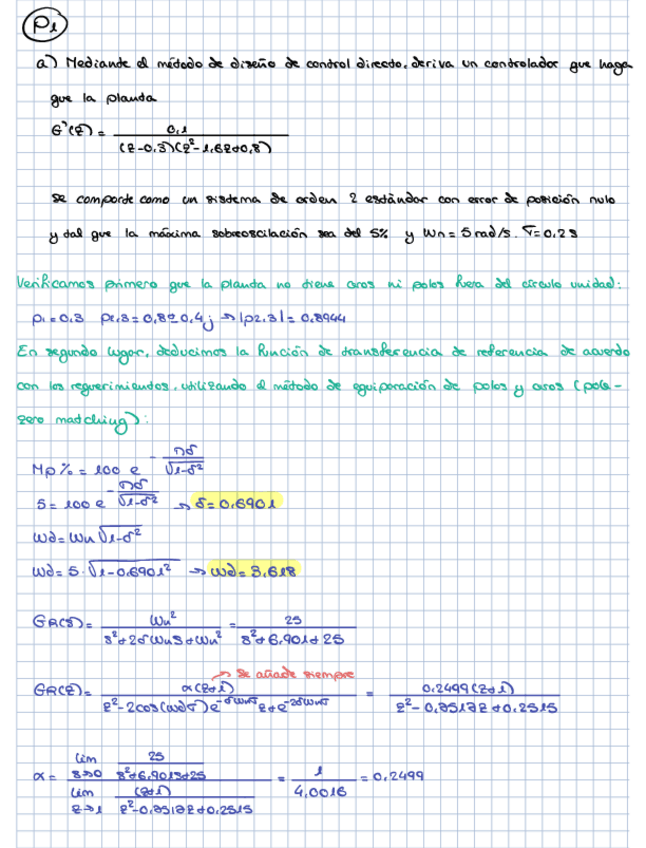 P1
a) Mediante el método de diseño de control directo, deriva un controlador que haga
que la planta
G'(z) = 0,1 / (z-0,3)(z²-1,6z+0,8)
se comporte como un sistema de orden 2 estándar con error de posición nulo
y tal que la máxima sobreoscilación sea del 5% y Wn = 5 rad/s. T=0,2s
Verificamos primero que la planta no tiene ceros ni polos fuera del círculo unidad:
p1 = 0,3 p2,3 = 0,8±0,4j → |p2,3| = 0,8944
En segundo lugar, deducimos la función de transferencia de referencia de acuerdo
con los requerimientos, utilizando el método de equiparación de polos y ceros (pole-
zero matching):
Mp% = 100 e^(-πδ/√1-δ²)
5 = 100 e^(-πδ/√1-δ²) → δ = 0,6901
Wd = Wn √1-δ²
Wd = 5·√1-0,6901² → Wd = 3,618
GR(s) = Wn² / s²+2δWns+Wn² = 25 / s²+6,901+25
→ Se añade siempre
GR(z) = α(z+1) / z²-2cos(WdT)e^(-δWnT)z+e^(-2δWnT) = 0,2499(z+1) / z²-0,7517z+0,2515
α = lim s→0 25 / s²+6,901s+25 / lim z→1 (z+1) / z²-0,7517z+0,2515 = 1 / 4,0016 = 0,2499